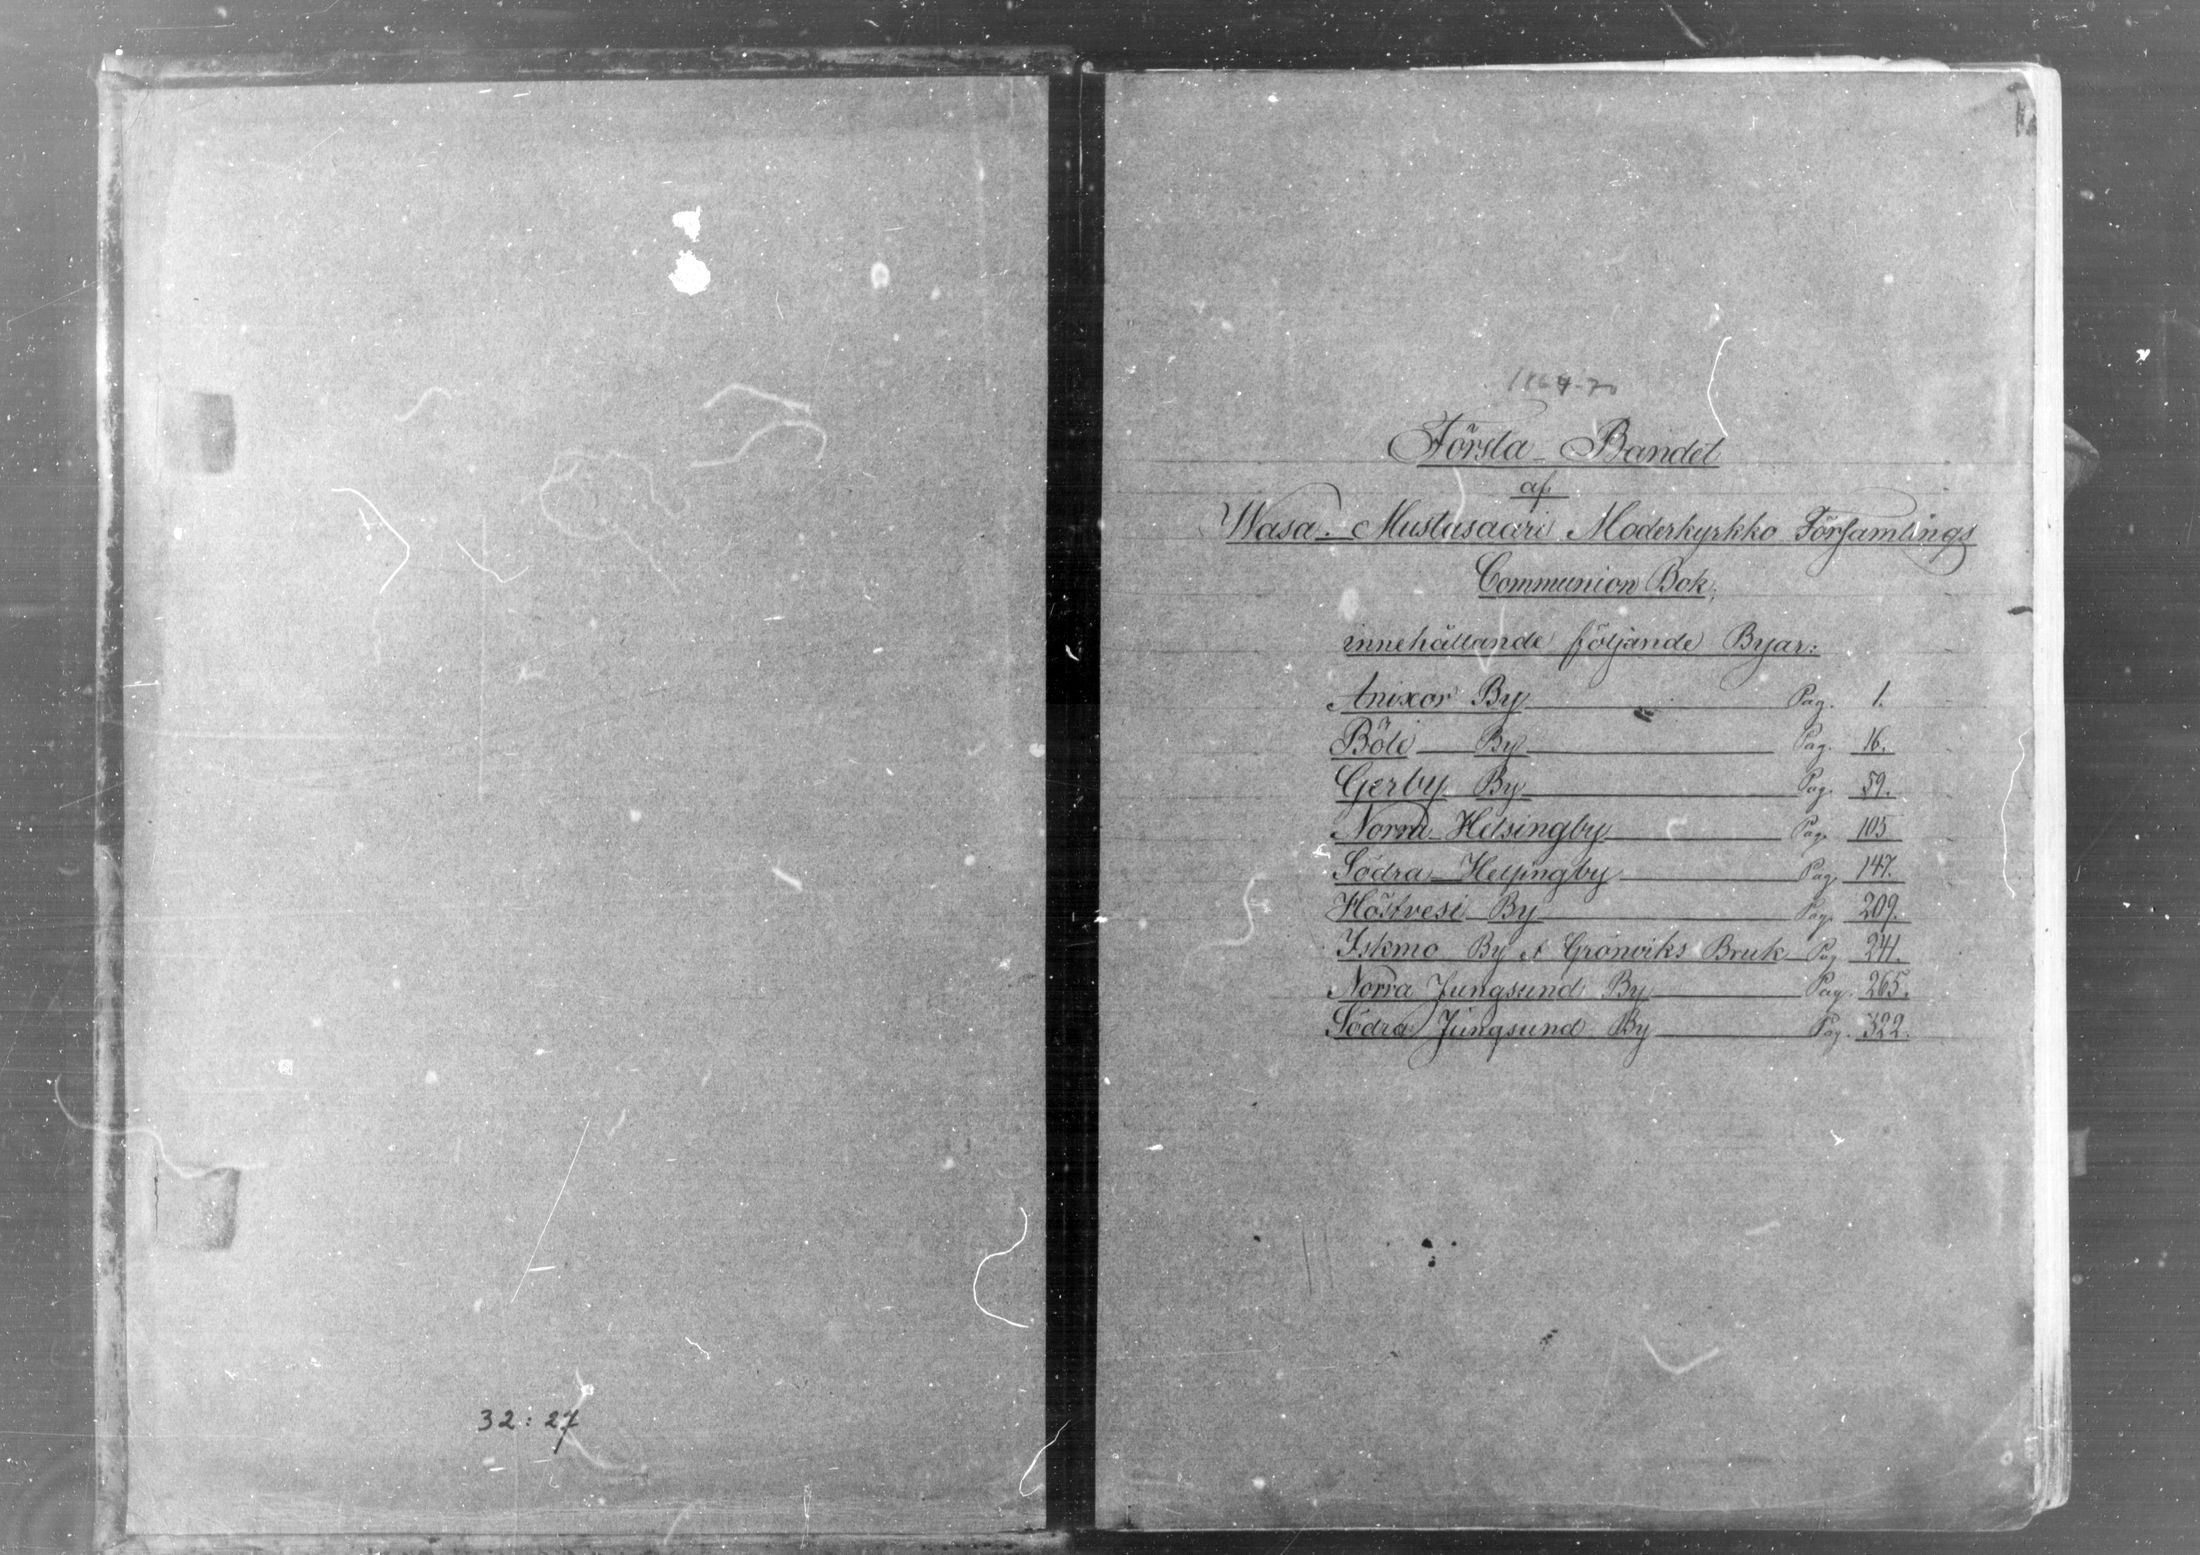 32:27
1864-70
Första Bandet
af
Wasa-Mustasaari Moderkyrkko Församlings
Communion Bok,
innehållande följande Byar:
Anixor By Pag. 1.
Böle By Pag. 16.
Gerby By Pag. 59.
Norra Helsingby Pag. 105
Södra Helsingby Pag. 147.
Höstvesi By Pag. 209.
Iskmo By et Grönviks Bruk Pag. 241.
Norra Jungsund By Pag. 265.
Södra Jungsund By Pag. 322.